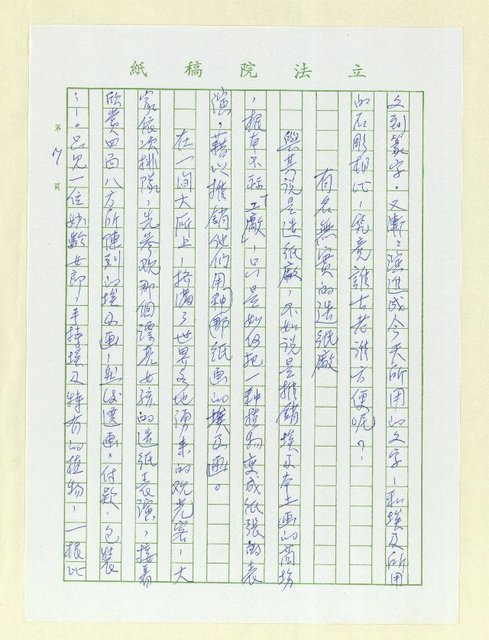 立法院稿紙
文到篆字,又漸漸演進成今天所用的文字,和埃及所用
的石彫相比,究竟誰古老誰方便呢?
有名無實的造紙廠
與其說是造紙廠,不如說是推銷埃及本土畫的商場
,根本不稱「工廠」,只是如何把一種植物變成紙張的表
演,藉以推銷他們用種那紙畫的埃及畫。
在一間大廳上,擠滿了世界各地湧來的觀光客,大
家依次排隊,先參觀那個漂亮女孩的造紙表演,接着
欣賞四面八方所陳列的埃及畫,然後選畫,付款,包裝
…。只見一位妙齡女郎,手持埃及特有的植物,一根比
第7頁